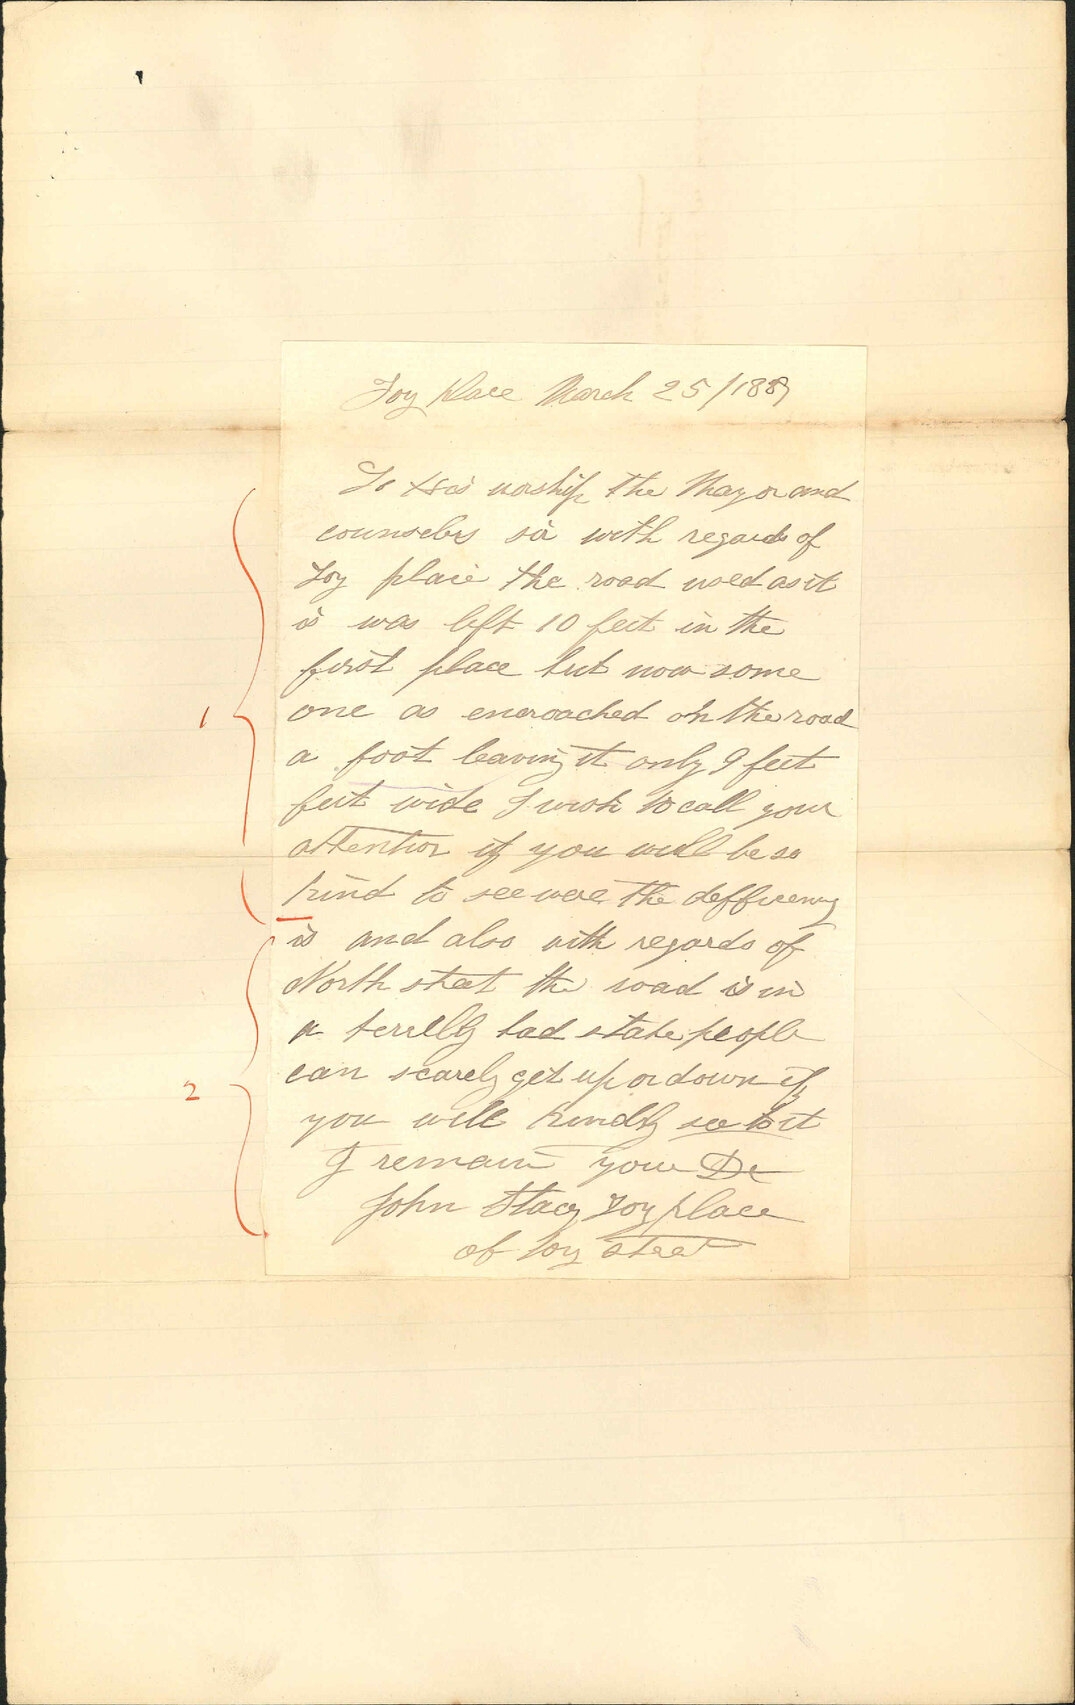 Foy place March 25/1889
To His worship the Mayor and
counselers sir with regards of
Foy place the road used as it
is was left 10 feet in the
first place but now some
one as encroached on the road
a foot leaving it only 9 feet
feet wide I wish to call your
attention if you will be so
kind to see were the defficiency
is and also with regards of
North street the road is in
a terrelby bad state people
can scarely get up or down if
you will kindly see to it
I remain your
John Stacy Foy place
of Foy street
1
2